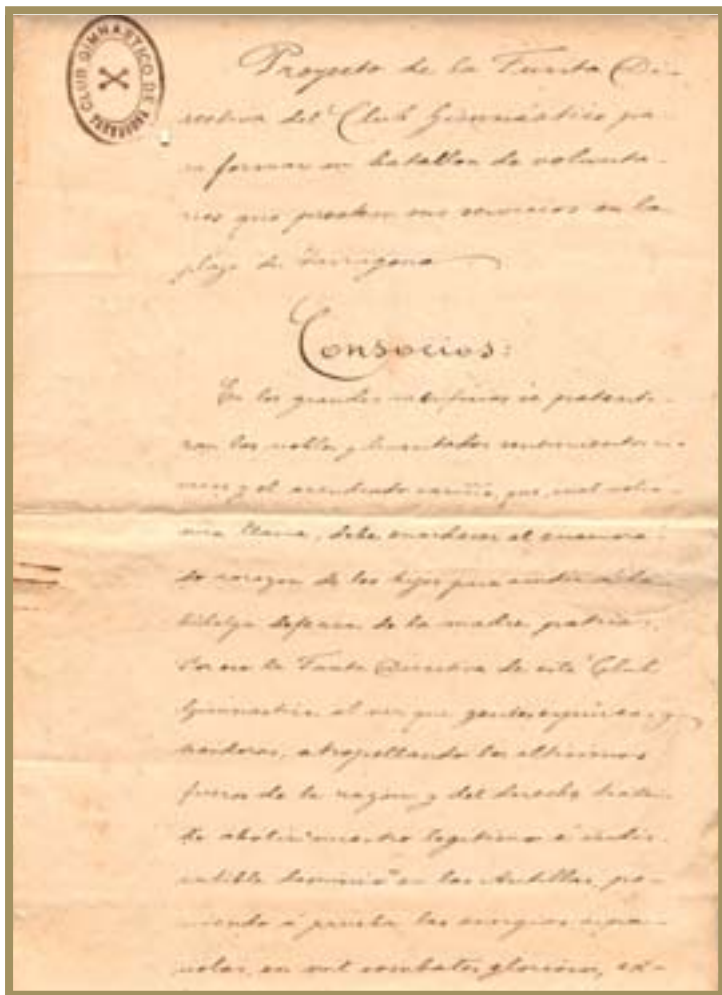 CLUB GIMNÁSTICO DE TARRAGONA
Proyecto de la Junta Di-
rectiva del Club Gimnástico pa-
ra formar un batallon de volunta-
rios que presten sus servicios en la
plaza de Tarragona
Consocios:
En los grandes se patenti-
zan los nobles y sentimientos
y el acendrado cariño, que, cual
llama, debe enardecer el
do corazon de los hijos para acudir á la
hidalga defensa de la madre patria.
Por eso la Junta Directiva de este Club
Gimnástico al ver que gentes espúreas y
traidoras, atropellando los altísimos
fueros de la razon y del derecho tratan
de abolir nuestro legítimo é indis-
cutible dominio en las Antillas, po-
niendo á prueba las energias espa-
ñolas, en mil combates gloriosos, ex-